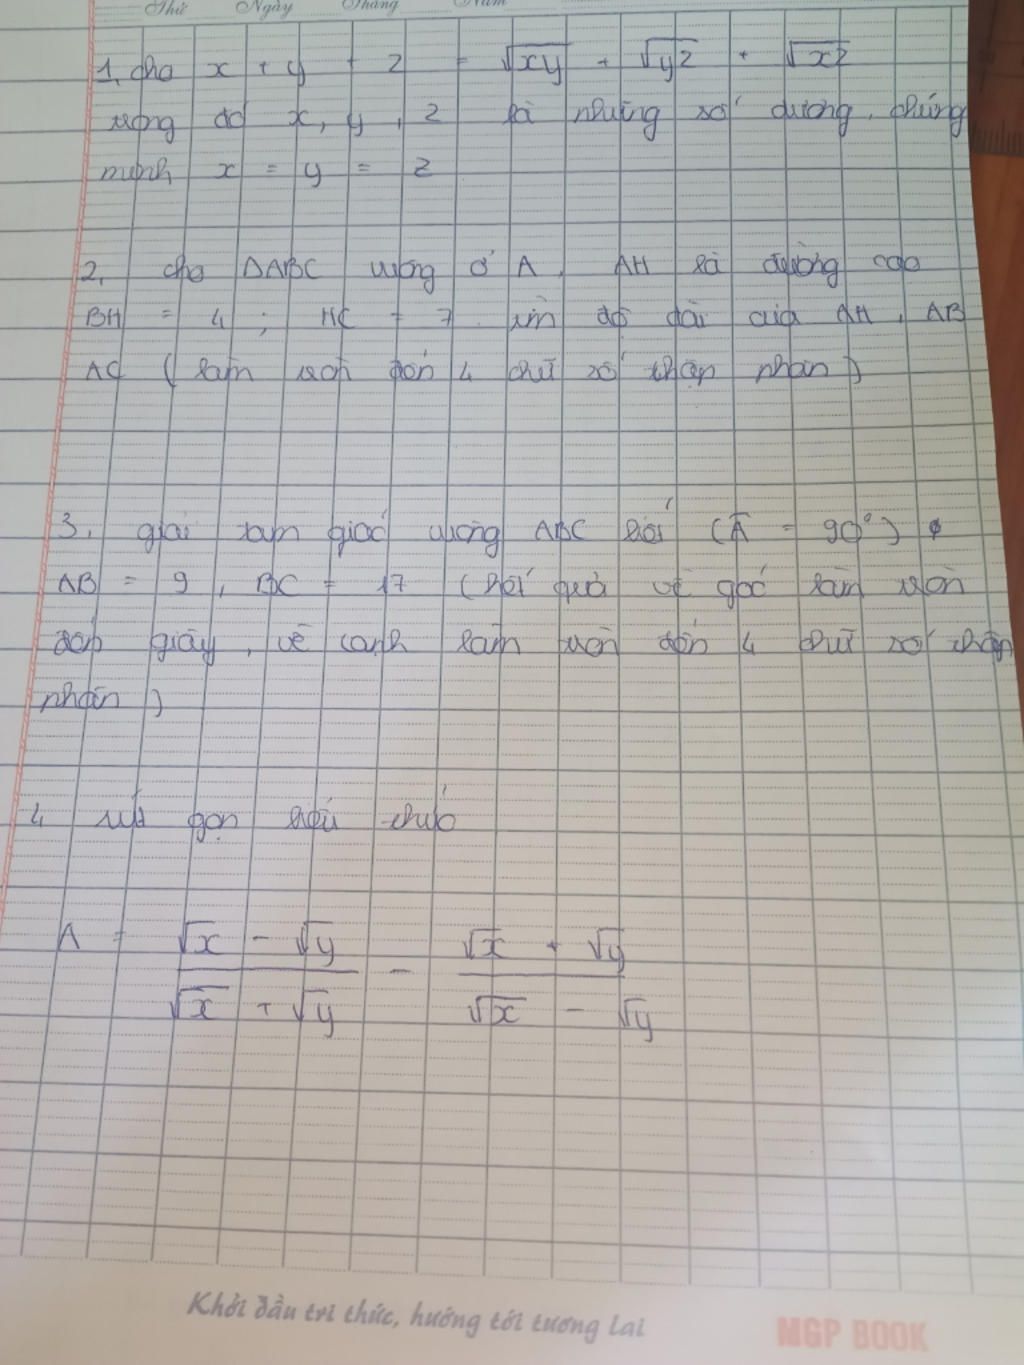 Thứ Ngày Tháng Năm
1, cho x + y + z = √xy + √yz + √xz
trong đó x, y, z là những số dương, chứng
minh x = y = z
2, cho ΔABC vuông ở A, AH là đường cao
BH = 4 ; HC = 7 tìm độ dài của AH, AB
AC ( làm tròn đến 4 chữ số thập phân )
3, giải tam giác vuông ABC biết ( Â = 90° )
AB = 9 , BC = 17 ( kết quả về góc làm tròn
đến giây, về cạnh làm tròn đến 4 chữ số thập
phân )
4 rút gọn biểu thức
A = (√x - √y)/(√x + √y) - (√x + √y)/(√x - √y)
Khởi đầu tri thức, hướng tới tương lai
MGP BOOK